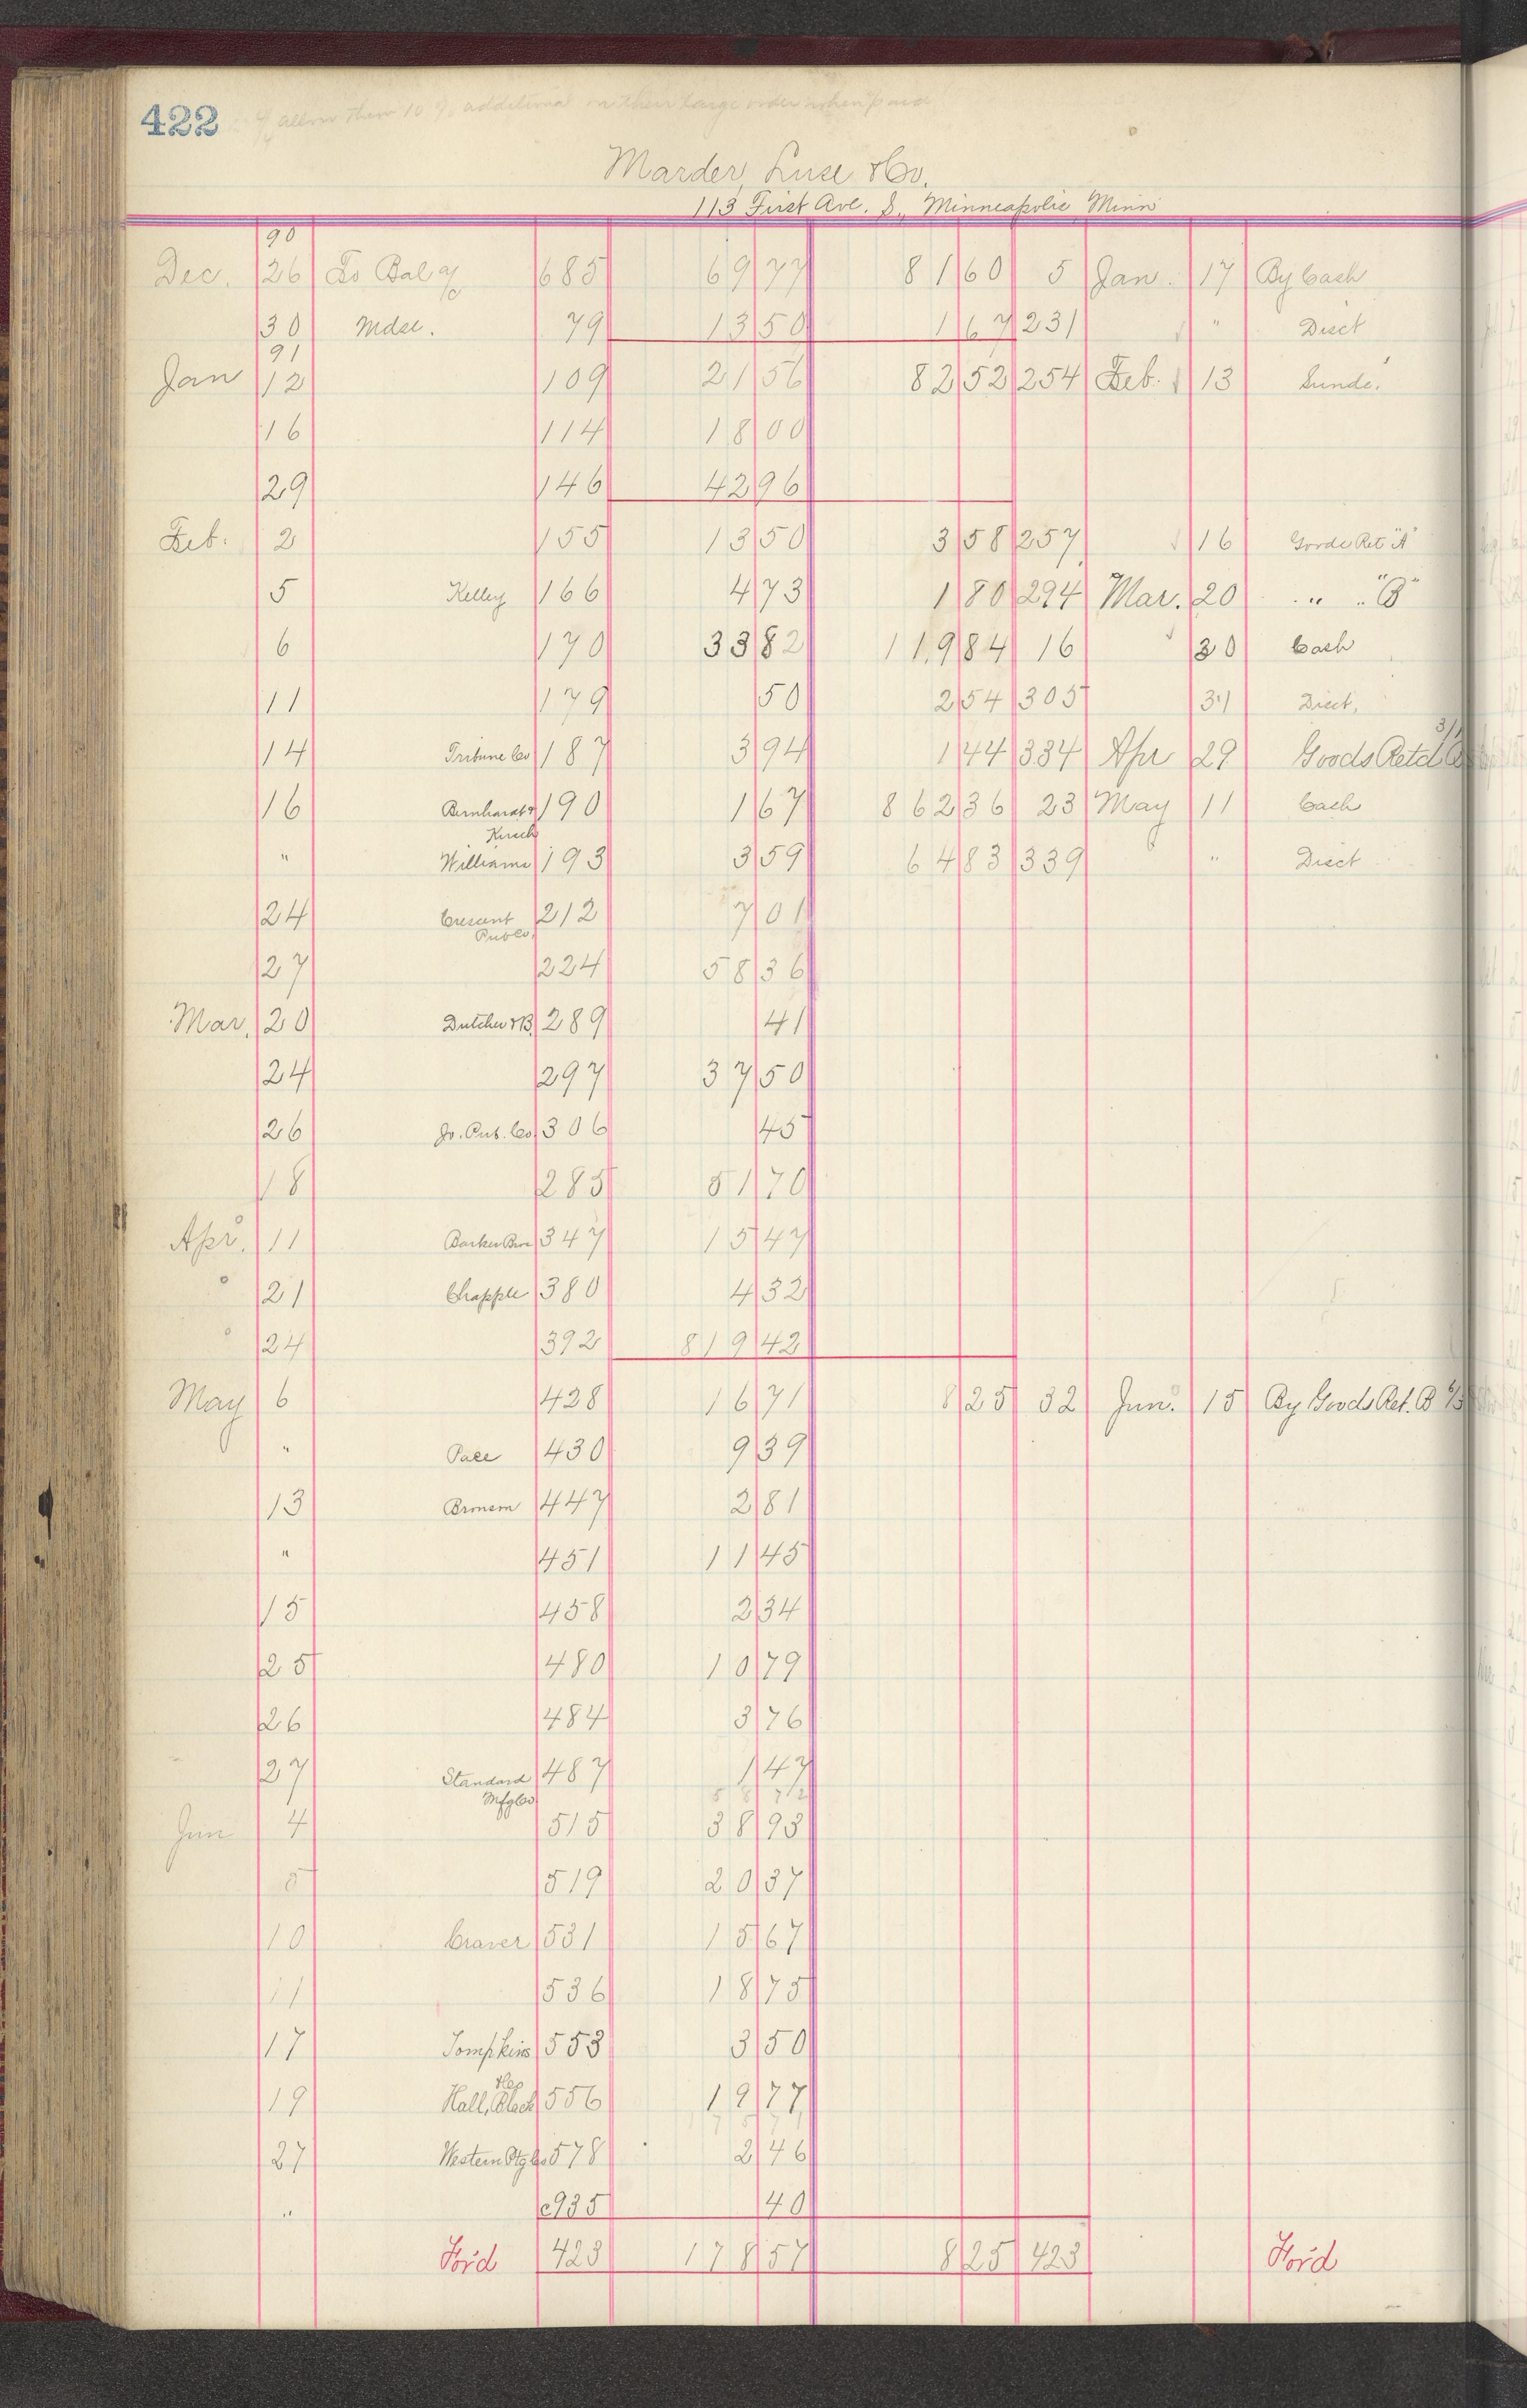 422
allow them 10 % additional on their large order when paid
Marder, Luse & Co.
113 First Ave. S., Minneapolis Minn
90
Dec. 26 To Bal a/c 685 69 77 81 60 5 Jan. 17 By Cash
30 Mdse. 79 13 50 1 67 231 " Disct
91
Jan 12 109 21 56 82 52 254 Feb. 13 Sunds.
16 114 18 00
29 146 42 96
Feb. 2 155 13 50 3 58 257 16 Goods Ret "A"
5 Kelley 166 4 73 1 80 294 Mar. 20 " " "B"
6 170 33 82 119 84 16 30 Cash
11 179 50 2 54 305 31 Disct.
14 Tribune Co 187 3 94 1 44 334 Apr 29 Goods Retd
16 Bernhardt & 190 1 67 862 36 23 May 11 Cash
Kirsch
" Williams 193 3 59 64 83 339 " Disct
24 Crescent 212 7 01
Pub Co.
27 224 58 36
Mar. 20 Dutcher & B. 289 41
24 297 37 50
26 Jo. Pub. Co. 306 45
18 285 51 70
Apr. 11 Barker Bros 347 15 47
21 Chapple 380 4 32
24 392 819 42
May 6 428 16 71 8 25 32 Jun. 15 By Goods Ret. B
" Pace 430 9 39
13 Bronson 447 2 81
" 451 11 45
15 458 2 34
25 480 10 79
26 484 3 76
27 Standard 487 1 47
Mfg Co
Jun 4 515 38 93
5 519 20 37
10 Craver 531 15 67
11 536 18 75
17 Tompkins 553 3 50
19 Hall, Black & Co 556 19 77
27 Western Ptg Co 578 2 46
" c935 40
For'd 423 178 57 8 25 423 For'd